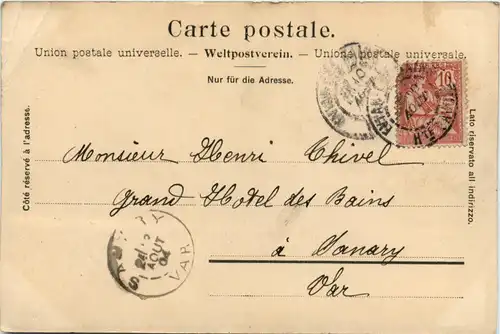 Carte postale.
Union postale universelle. – Weltpostverein. – Unione postale universale.
Nur für die Adresse.
Côté réservé à l'adresse.
Lato riservato all indirizzo.
10
Monsieur Henri Chivel
Grand Hotel des Bains
à Sanary
Var
SANARY
AOUT
04
VAR